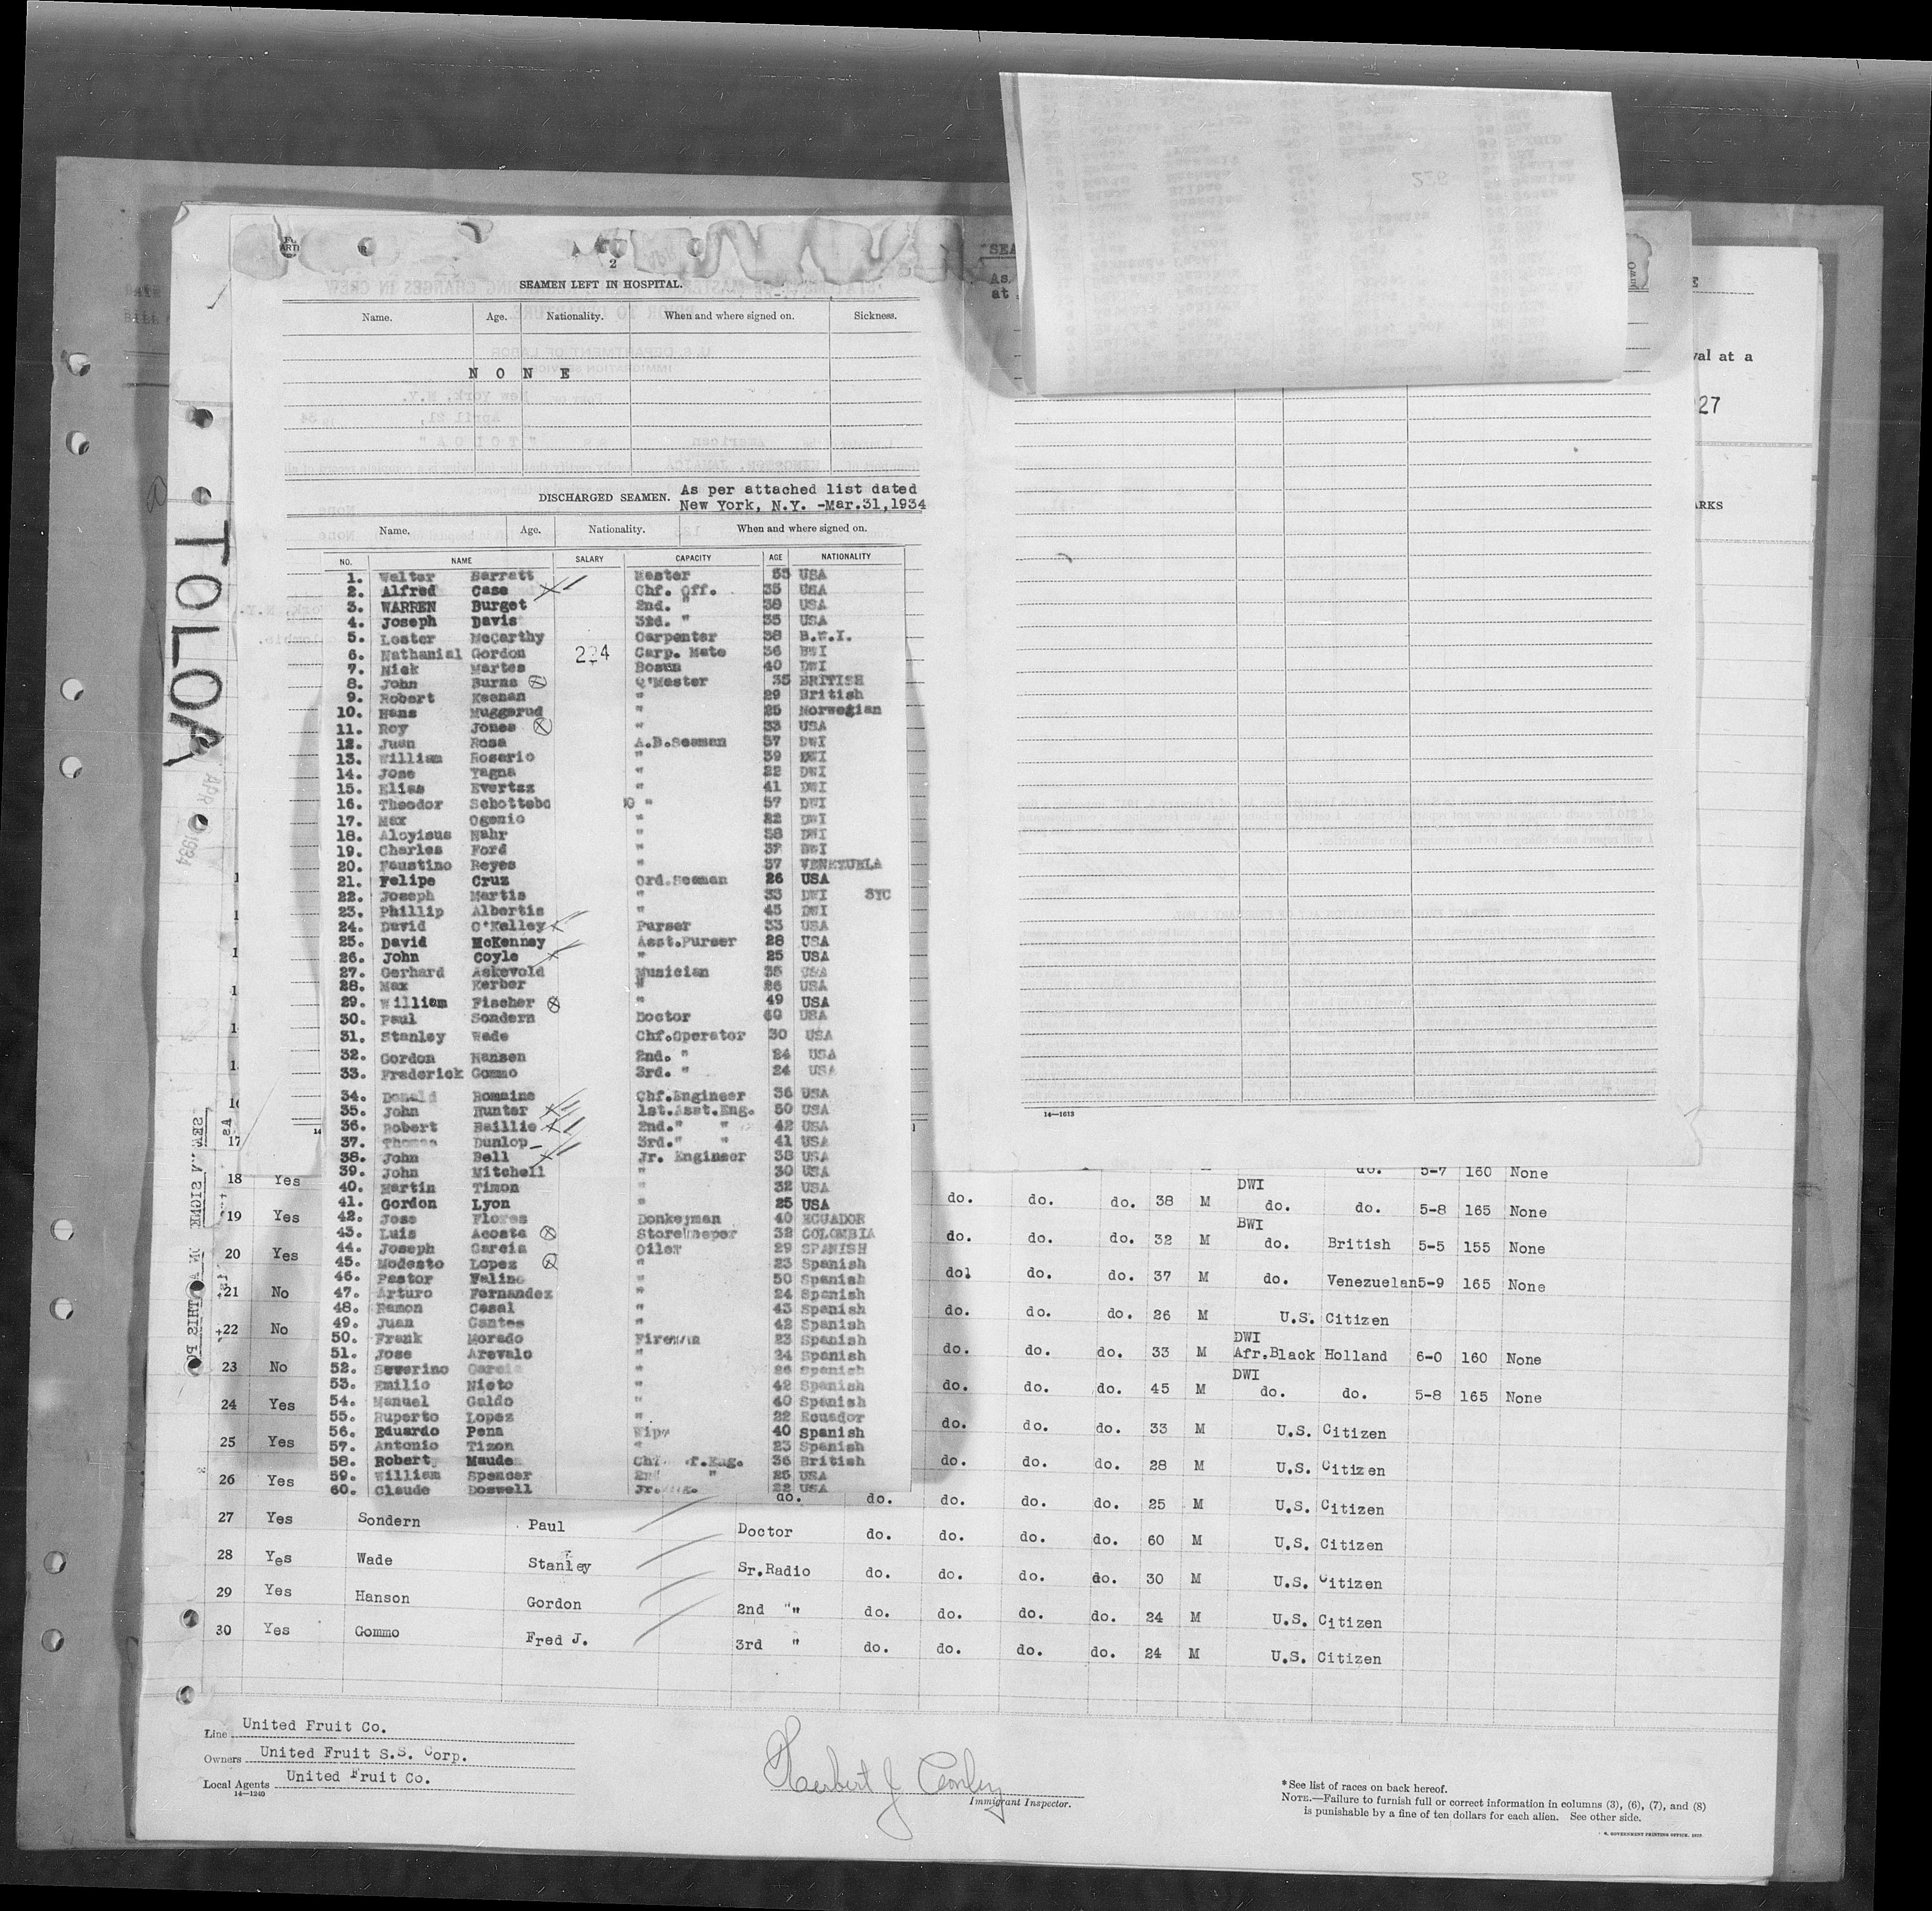 2
SEAMEN LEFT IN HOSPITAL.
Name. Age. Nationality. When and where signed on. Sickness.
N O N E
DISCHARGED SEAMEN. As per attached list dated
New York, N.Y. -Mar.31,1934
Name. Age. Nationality. When and where signed on.
NO. NAME SALARY CAPACITY AGE NATIONALITY
1. Walter Barratt Master 55 USA
2. Alfred Case Chf. Off. 35 USA
3. WARREN Burget 2nd. " 38 USA
4. Joseph Davis 3rd. " 35 USA
5. Lester McCarthy Carpenter 38 B.W.I.
6. Nathanial Gordon 224 Carp. Mate 36 BWI
7. Nick Martes Bosun 40 DWI
8. John Burns Q'Master 35 BRITISH
9. Robert Keenan " 29 British
10. Hans Muggerud " 25 Norwegian
11. Roy Jones " 33 USA
12. Juan Rosa A.B.Seaman 37 DWI
13. William Rosario " 39 DWI
14. Jose Yagna " 22 DWI
15. Elias Evertsz " 41 DWI
16. Theodor Schottebo " 57 DWI
17. Max Ogenio " 22 DWI
18. Aloyisus Nahr " 38 DWI
19. Charles Ford " 32 BWI
20. Faustino Reyes " 37 VENEZUELA
21. Felipe Cruz Ord.Seaman 26 USA
22. Joseph Martis " 33 DWI SYC
23. Phillip Albertis " 45 DWI
24. David O'Kelley Purser 33 USA
25. David McKenney Asst.Purser 28 USA
26. John Coyle " 25 USA
27. Gerhard Askevold Musician 35 USA
28. Max Kerber " 26 USA
29. William Fischer " 49 USA
30. Paul Sondern Doctor 60 USA
31. Stanley Wade Chf.Operator 30 USA
32. Gordon Hansen 2nd. " 24 USA
33. Frederick Gommo 3rd. " 24 USA
34. Donald Romaine Chf.Engineer 36 USA
35. John Hunter 1st.Asst.Eng. 50 USA
36. Robert Baillie 2nd." " 42 USA
37. Thomas Dunlop 3rd." " 41 USA
38. John Bell Jr. Engineer 38 USA
39. John Mitchell " 30 USA
40. Martin Timon " 32 USA
41. Gordon Lyon " 25 USA
42. Jose Flores Donkeyman 40 ECUADOR
43. Luis Acosta Storekeeper 32 COLOMBIA
44. Joseph Garcia Oiler 29 SPANISH
45. Modesto Lopez " 23 Spanish
46. Pastor Faline " 50 Spanish
47. Arturo Fernandez " 24 Spanish
48. Ramon Casal " 43 Spanish
49. Juan Cantes " 42 Spanish
50. Frank Morado Fireman 23 Spanish
51. Jose Arevalo " 24 Spanish
52. Severino Garcia " 26 Spanish
53. Emilio Nieto " 42 Spanish
54. Manuel Galdo " 40 Spanish
55. Ruperto Lopez " 22 Ecuador
56. Eduardo Pena Wipe 40 Spanish
57. Antonio Tizon " 23 Spanish
58. Robert Maude Chf. f.Eng. 36 British
59. William Spencer 2nd " 25 USA
60. Claude Doswell Jr. 22 USA
TOLOA
APR 1934
val at a
27
ARKS
14—1613
17 do. 5-7 160 None
18 Yes do. do. do. 38 M DWI do. do. 5-8 165 None
19 Yes do. do. do. 32 M BWI do. British 5-5 155 None
20 Yes do. do. do. 37 M do. Venezuelan 5-9 165 None
21 No do. do. do. 26 M U.S. Citizen
22 No do. do. do. 33 M DWI Afr.Black Holland 6-0 160 None
23 No do. do. do. 45 M DWI do. do. 5-8 165 None
24 Yes do. do. do. 33 M U.S. Citizen
25 Yes do. do. do. 28 M U.S. Citizen
26 Yes do. do. do. do. do. 25 M U.S. Citizen
27 Yes Sondern Paul Doctor do. do. do. do. 60 M U.S. Citizen
28 Yes Wade Stanley Sr.Radio do. do. do. do. 30 M U.S. Citizen
29 Yes Hanson Gordon 2nd "" do. do. do. do. 24 M U.S. Citizen
30 Yes Gommo Fred J. 3rd " do. do. do. do. 24 M U.S. Citizen
Line United Fruit Co.
Owners United Fruit S.S. Corp.
Local Agents United Fruit Co.
14—1240
Immigrant Inspector.
*See list of races on back hereof.
NOTE.—Failure to furnish full or correct information in columns (3), (6), (7), and (8)
is punishable by a fine of ten dollars for each alien. See other side.